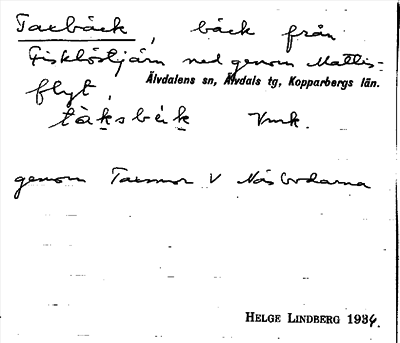 Taxbäck, bäck från
Fisklöstjärn ned genom Mattis-
flyt,
Älvdalens sn, Älvdals tg, Kopparbergs län.
tàksbèk Vmk.
genom Taxmor V Näsbodarna
HELGE LINDBERG 1934.